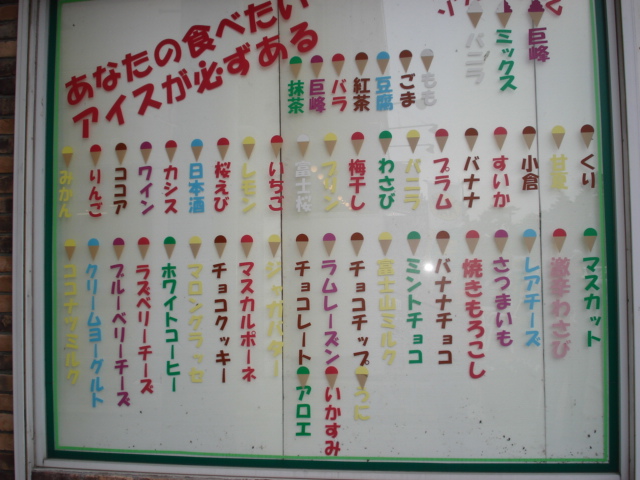 あなたの食べたい
アイスが必ずある
巨峰
ミックス
バニラ
もも
ごま
豆腐
紅茶
バラ
巨峰
抹茶
くり
甘夏
小倉
すいか
バナナ
プラム
バニラ
わさび
梅干し
富士桜
いちご
レモン
桜えび
日本酒
カシス
ワイン
ココア
りんご
みかん
マスカット
激辛わさび
レアチーズ
さつまいも
焼きもろこし
バナナチョコ
ミントチョコ
富士山ミルク
チョコチップ
ラムレーズン
チョコレート
ジャガバター
マスカルポーネ
チョコクッキー
マロングラッセ
ホワイトコーヒー
ラズベリーチーズ
ブルーベリーチーズ
クリームヨーグルト
ココナッツミルク
うに
いかすみ
アロエ